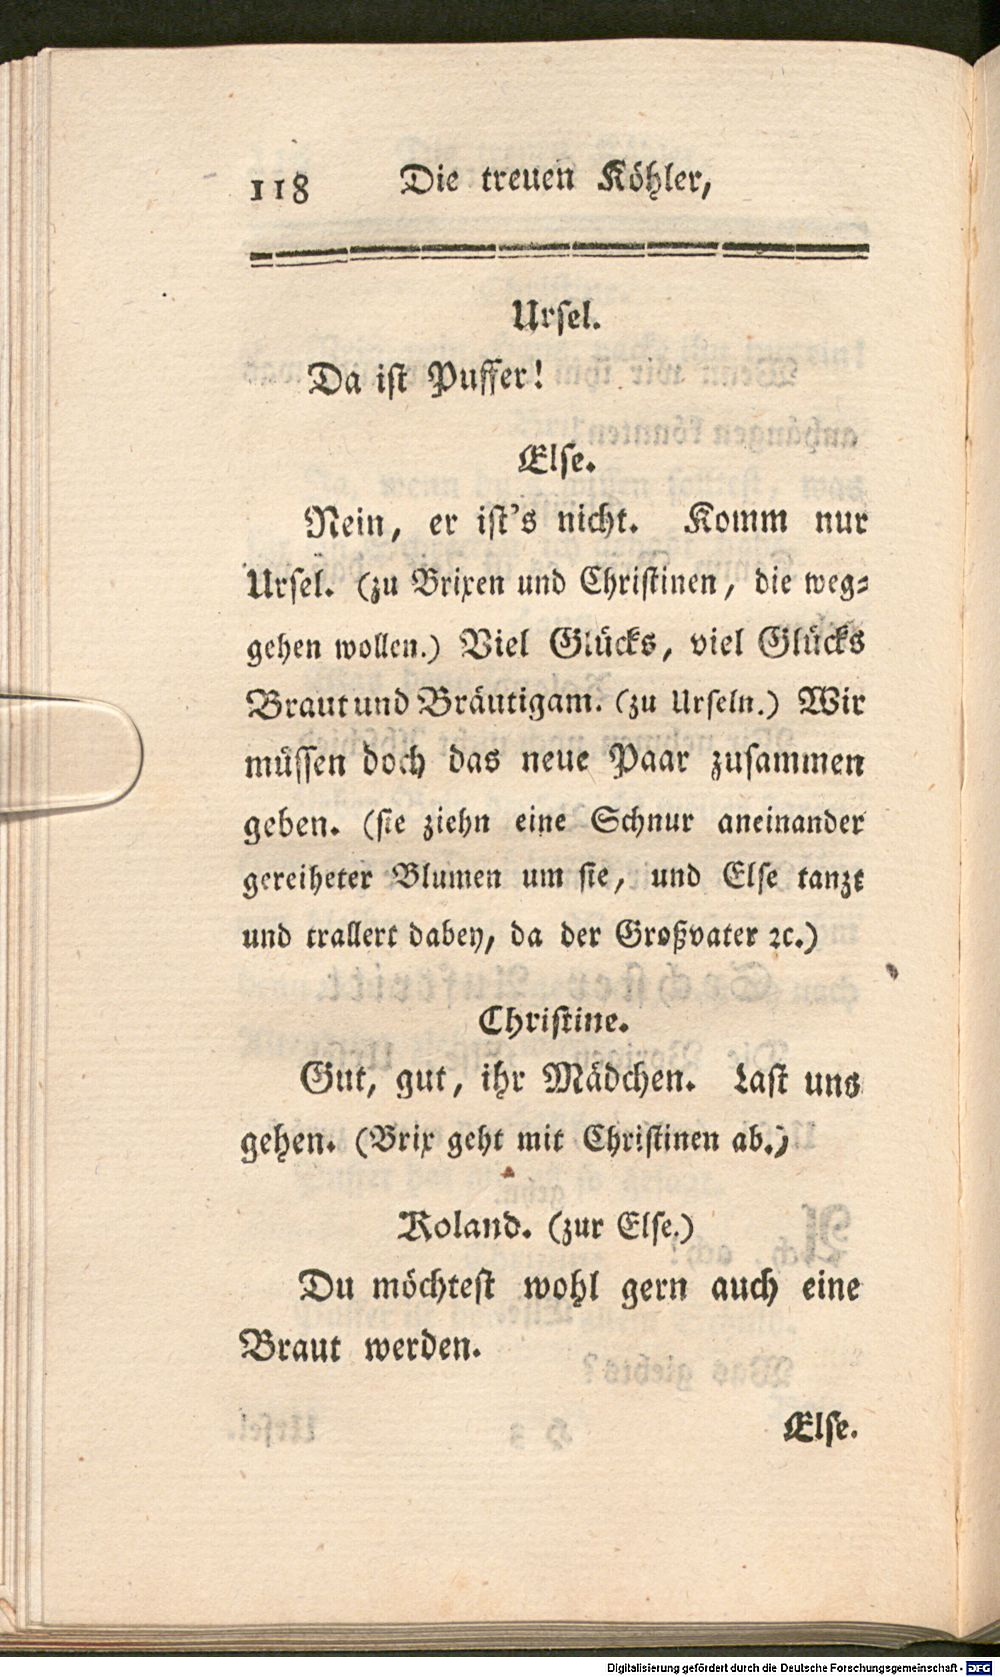 118 Die treuen Köhler,
Urſel.
Da iſt Puffer!
Elſe.
Nein, er iſt's nicht. Komm nur
Urſel. (zu Brixen und Chriſtinen, die weg⸗
gehen wollen.) Viel Glücks, viel Glücks
Braut und Bräutigam. (zu Urſeln.) Wir
müſſen doch das neue Paar zuſammen
geben. (ſie ziehn eine Schnur aneinander
gereiheter Blumen um ſie, und Elſe tanzt
und trallert dabey, da der Großvater ꝛc.)
Chriſtine.
Gut, gut, ihr Mädchen. Laſt uns
gehen. (Brix geht mit Chriſtinen ab.)
Roland. (zur Elſe.)
Du möchteſt wohl gern auch eine
Braut werden.
Elſe.
Digitalisierung gefördert durch die Deutsche Forschungsgemeinschaft - DFG